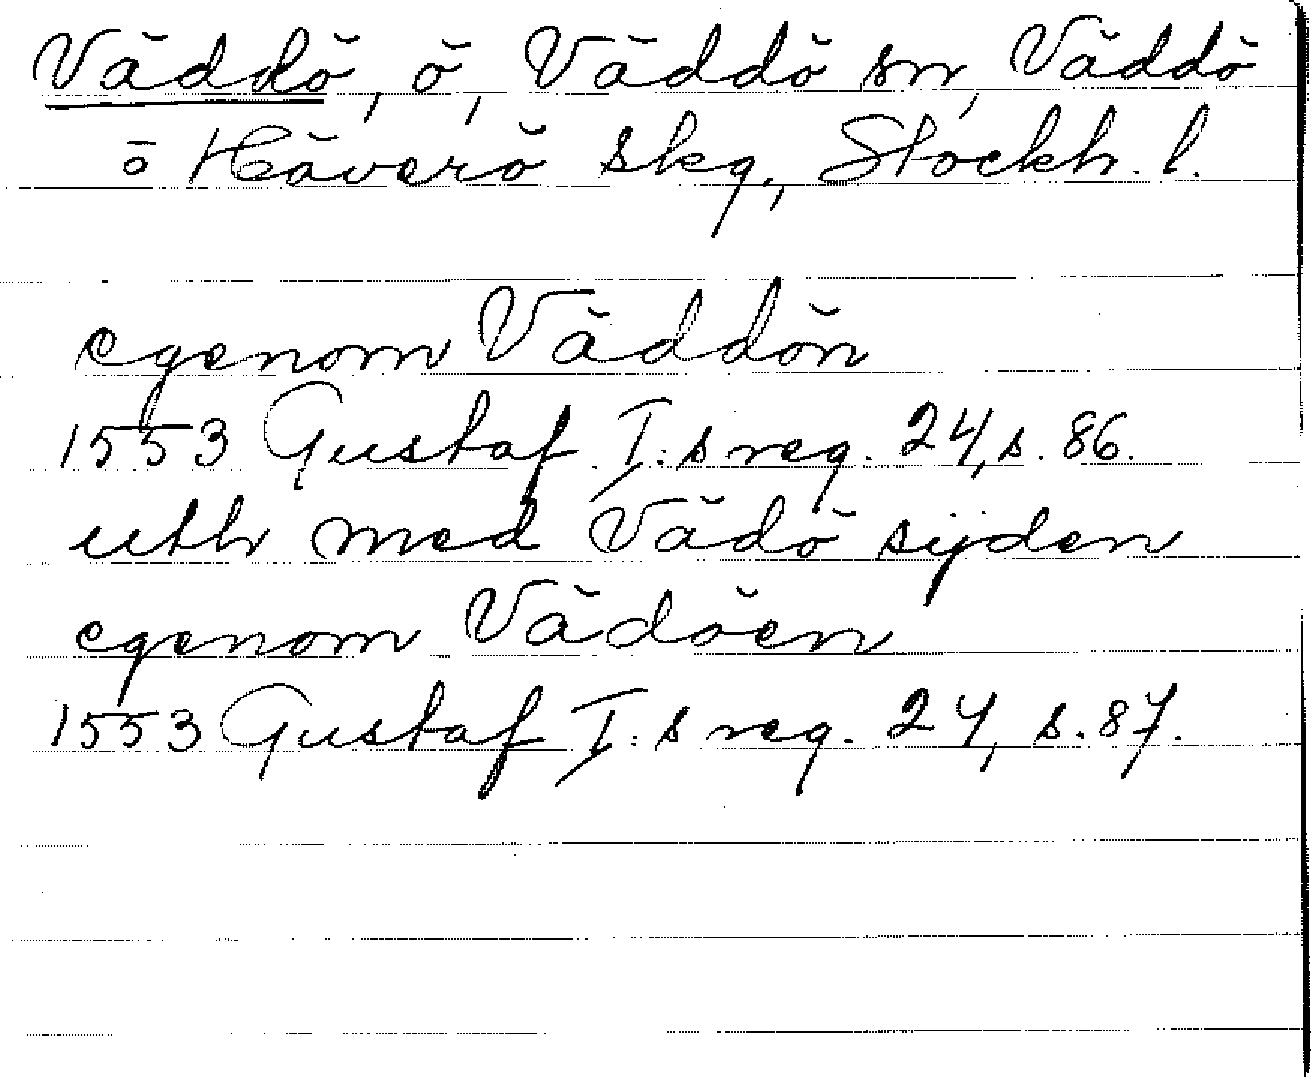 Väddö, ö, Väddö sn, Väddö
o Häverö skg., Stockh. l.
egenom Väddön
1553 Gustaf I:s reg. 24, s. 86.
uth med Vädö sijden
egenom Vädöen
1553 Gustaf I:s reg. 24, s. 87.